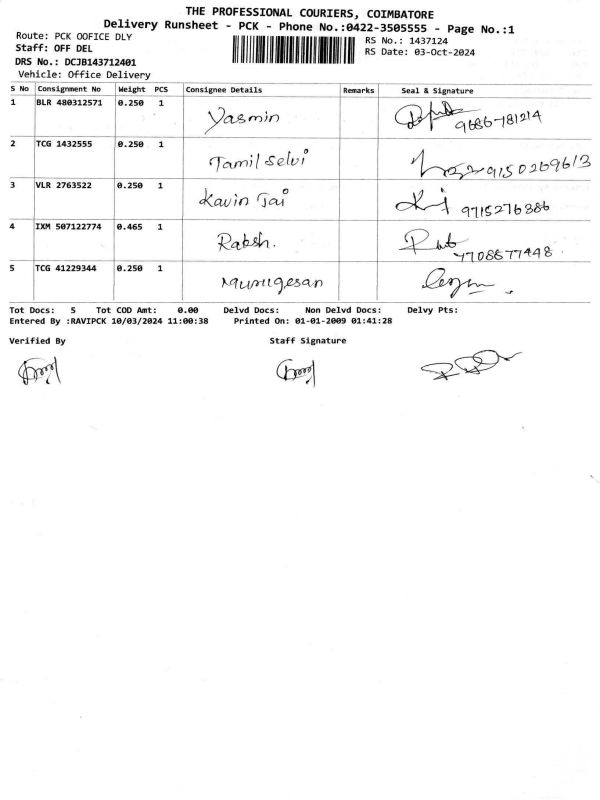 THE PROFESSIONAL COURIERS, COIMBATORE
Delivery Runsheet - PCK - Phone No.:0422-3505555 - Page No.:1
Route: PCK OOFICE DLY
RS No.: 1437124
Staff: OFF DEL
RS Date: 03-Oct-2024
DRS No.: DCJB143712401
Vehicle: Office Delivery
S No Consignment No Weight PCS Consignee Details Remarks Seal & Signature
1 BLR 480312571 0.250 1 Yasmin 9686-781214
2 TCG 1432555 0.250 1 Tamil Selvi 9150269613
3 VLR 2763522 0.250 1 Kavin Jai 9715276386
4 IXM 507122774 0.465 1 Raksh. 7708677448
5 TCG 41229344 0.250 1 Murugesan
Tot Docs: 5 Tot COD Amt: 0.00 Delvd Docs: Non Delvd Docs: Delvy Pts:
Entered By :RAVIPCK 10/03/2024 11:00:38 Printed On: 01-01-2009 01:41:28
Verified By Staff Signature